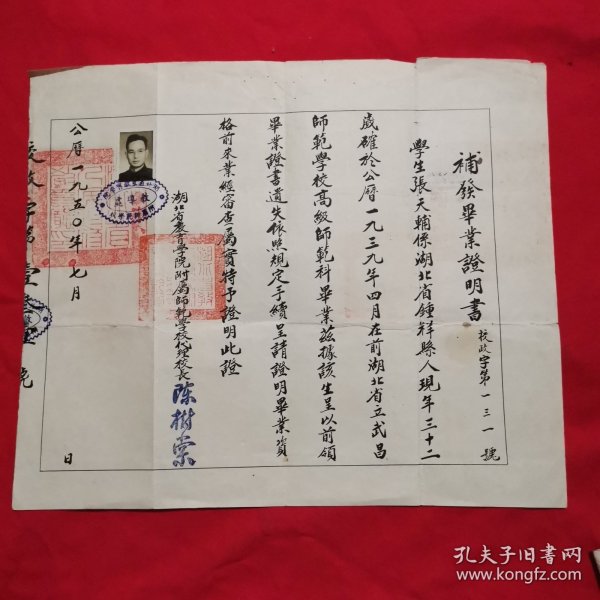 補發畢業證明書
校政字第一三一號
學生張天輔係湖北省鍾祥縣人現年三十二
歲確於公曆一九三九年四月在前湖北省立武昌
師範學校高級師範科畢業茲據該生呈以前領
畢業證書遺失依照規定手續呈請證明畢業資
格前來業經審查屬實特予證明此證
湖北省教育學院附屬師範學校代理校長
陳樹棠
公曆一九五〇年七月 日
校政字第壹叁壹號
教導處
孔夫子旧书网
www.kongfz.com